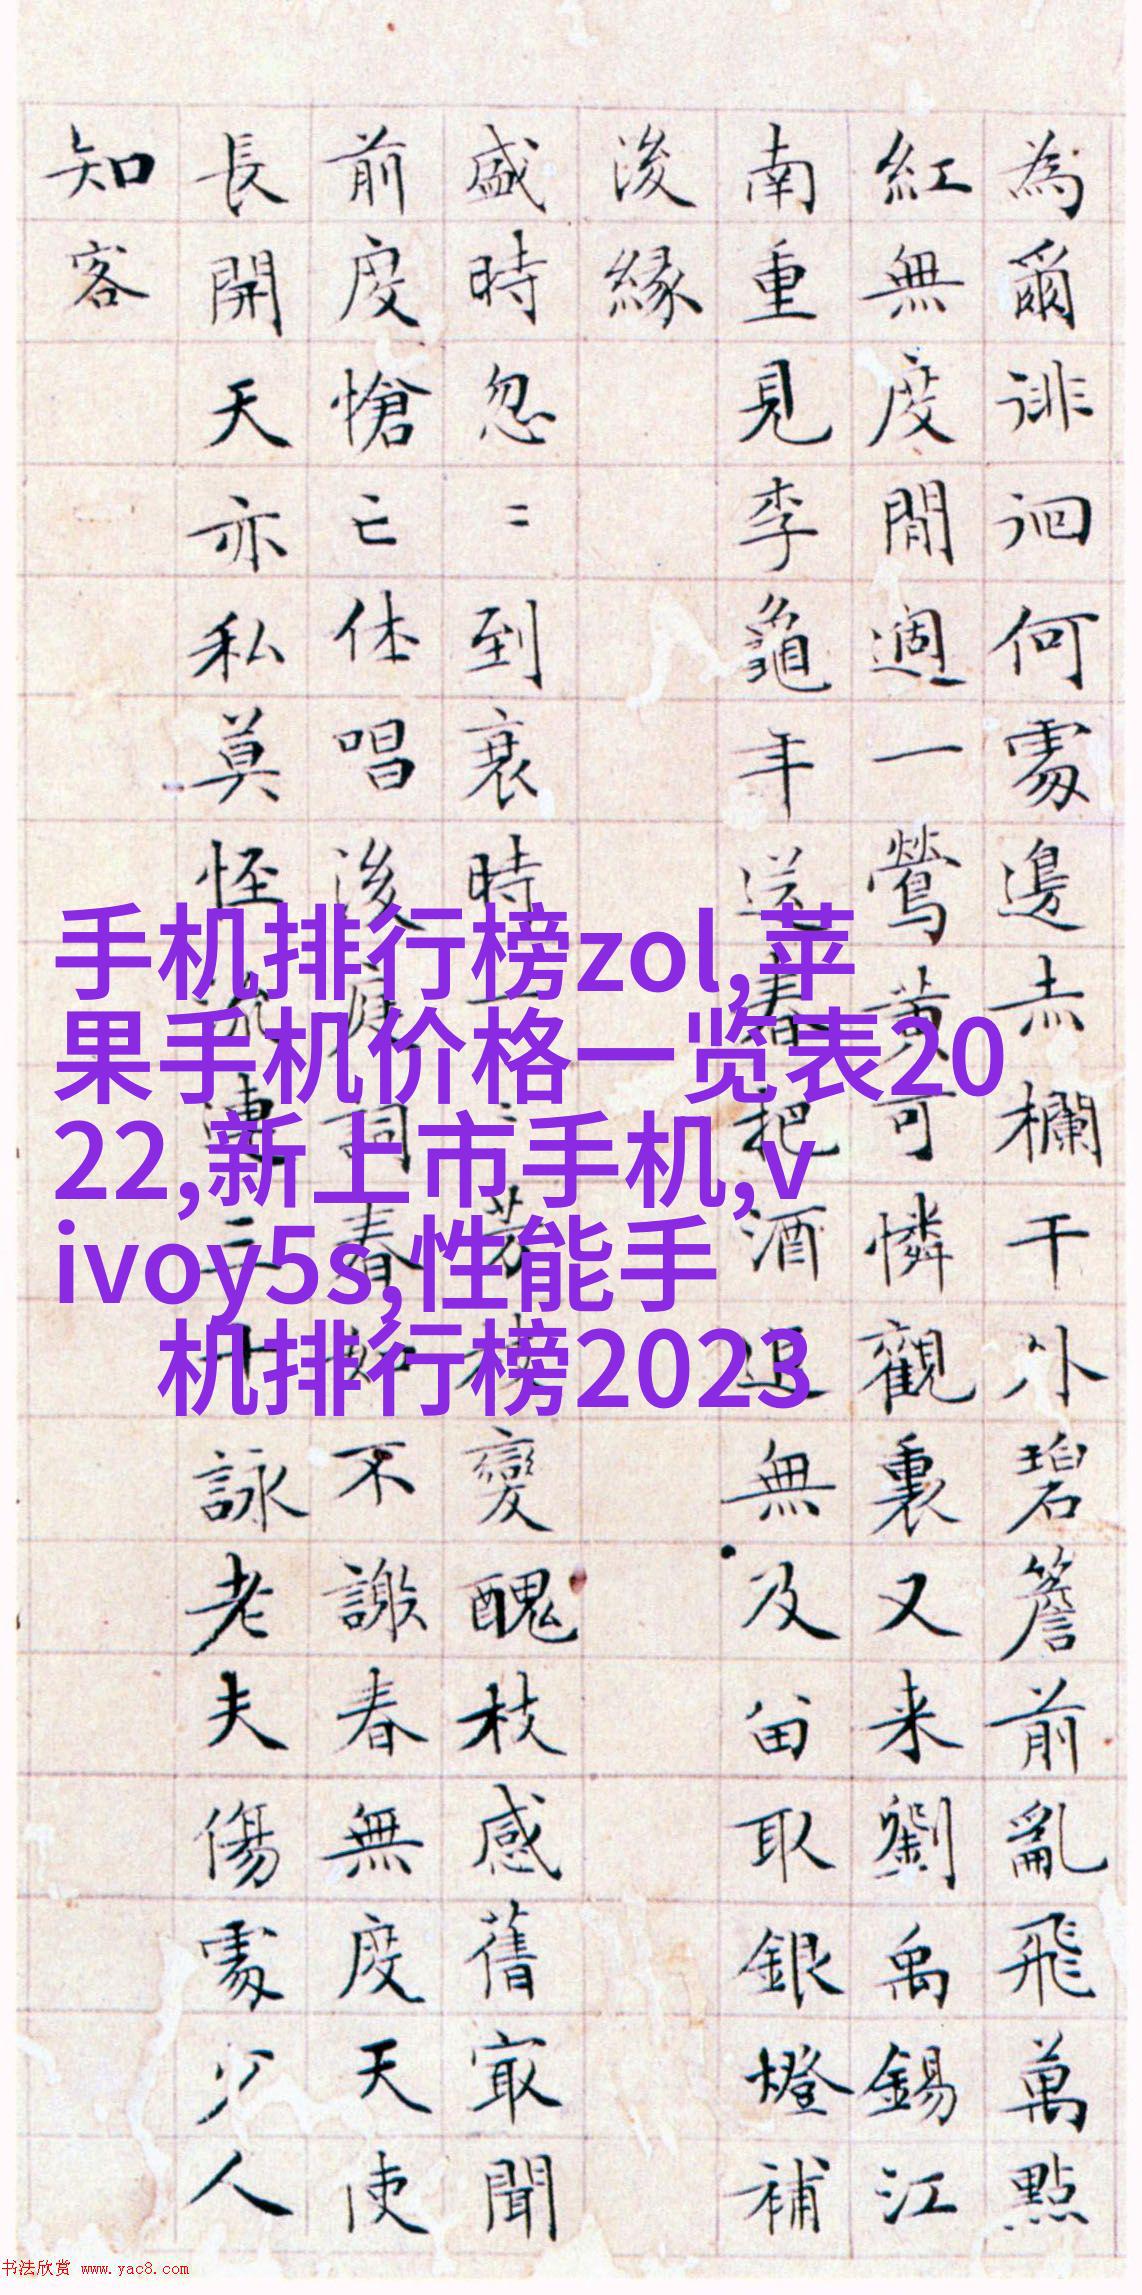 為爾徘徊何處邊赤欄干外碧簷前亂飛萬點
紅無度閒週一鶯黃可憐觀裏又来劉禹錫江
南重見李龜年送春把酒追無及留取銀燈補
後緣
盛時忽〻到衰時一〻芳枝變醜枝感舊最聞
前度愴亡休唱後庭詞春如不謝春無度天使
長開天亦私莫怪流連三十詠老夫傷處少人
知客
手机排行榜zol,苹
果手机价格一览表20
22,新上市手机,v
ivoy5s,性能手
机排行榜2023
书法欣赏 www.yac8.com